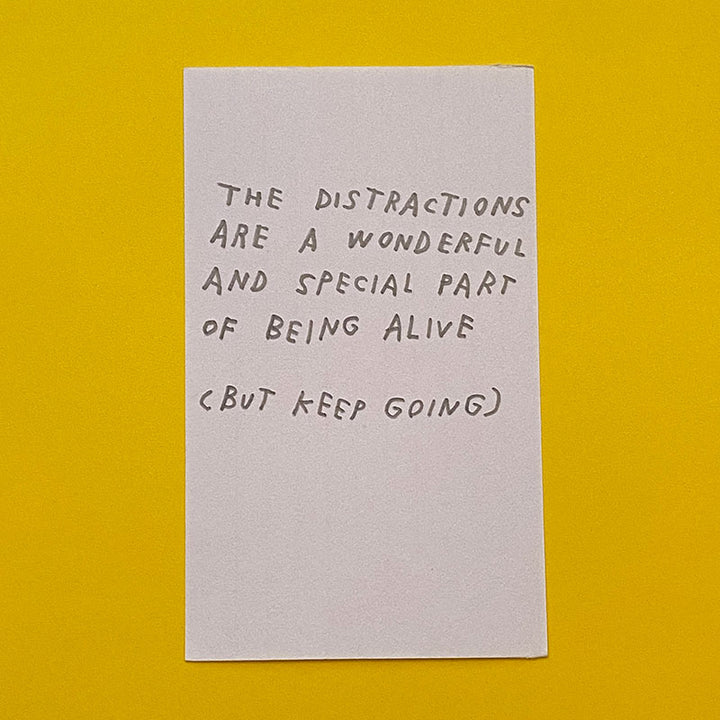 THE DISTRACTIONS
ARE A WONDERFUL
AND SPECIAL PART
OF BEING ALIVE
(BUT KEEP GOING)